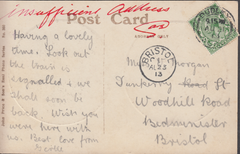 insufficient Address
Post Card
Having a lovely
time. Look out
the trunk is
we
shall soon be
back. Wish you
were here with
us. Best love from
BRISTOL
AU 23
13
Miss Morgan
Road
Woodhill Road
Bedminister
Bristol